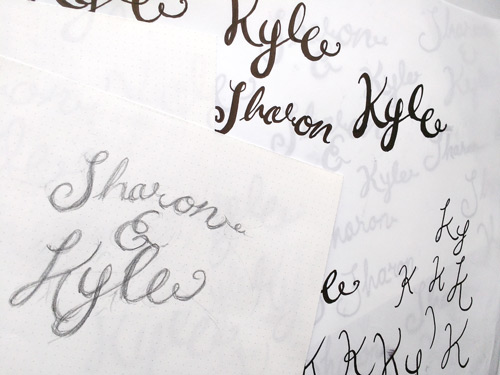 Kyle
Kyle
Sharon Kyle
Sharon
&
Kyle
Ky
e K K K
K K Ky K